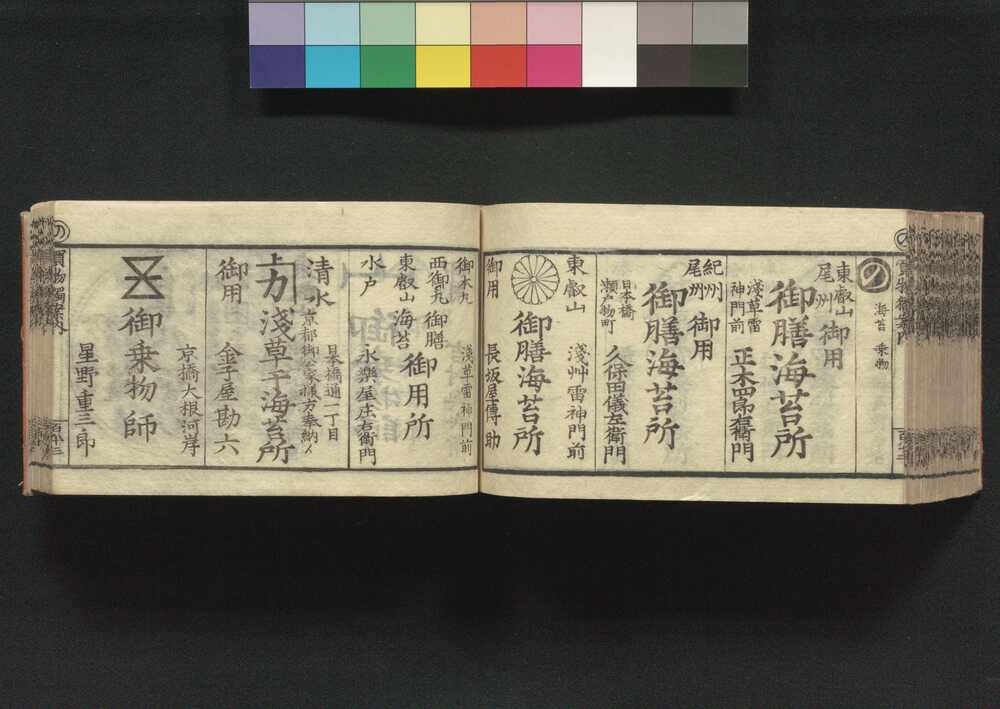 の
海苔 乗物
東叡山
尾州
御用
御膳海苔所
淺草雷
神門前
正木四郎左衛門
紀州
尾州
御用
御膳海苔所
日本橋
瀬戸物町
久保田儀左衛門
東叡山
御膳海苔所
淺艸雷神門前
御用
長坂屋傳助
御本九
西御丸
御膳
東叡山
海苔
御用所
淺草雷神門前
水戸
永樂屋庄右衛門
清水
京都御公家様方奉納人
日本橋通一丁目
上カ
淺草干海苔所
御用
金子屋勘六
京橋大根河岸
御乗物師
星野重三郎
の
買物獨案内